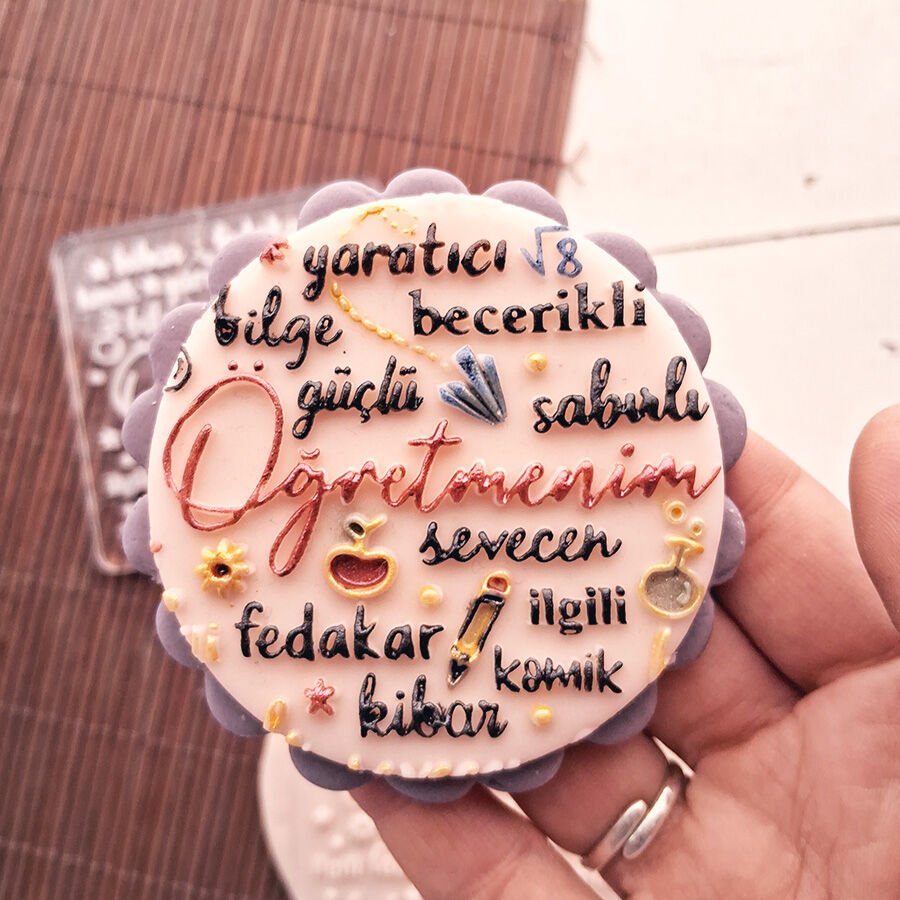 yaratıcı √8
bilge becerikli
güçlü sabırlı
Öğretmenim
sevecen
fedakar ilgili
komik
kibar